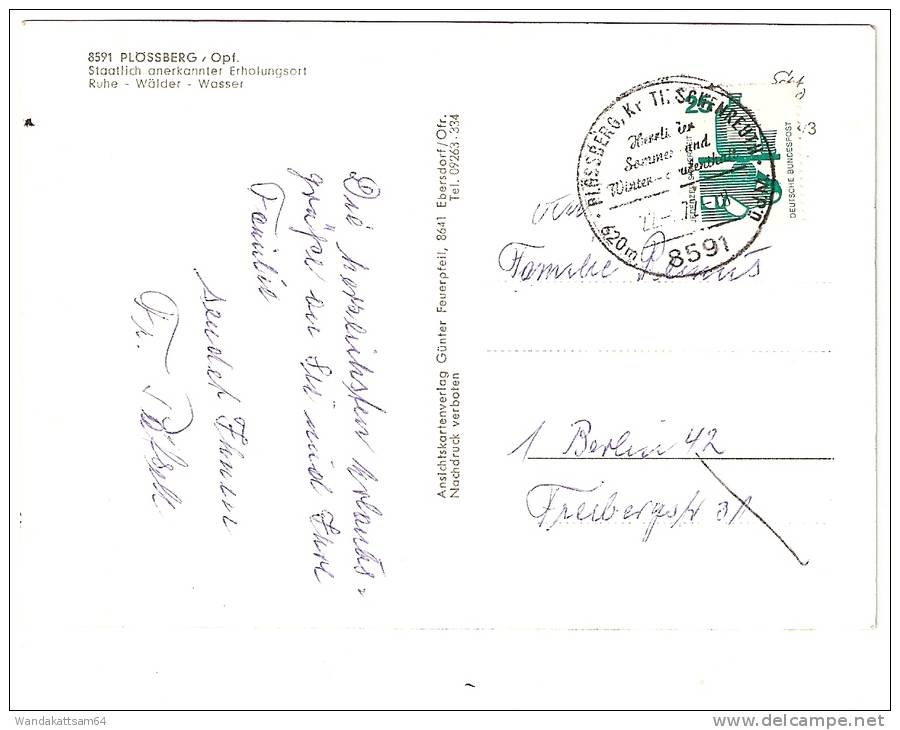 8591 PLÖSSBERG, Opf.
Staatlich anerkannter Erholungsort
Ruhe - Wälder - Wasser
Die herzlichsten Urlaubs=
grüße an Sie und Ihre
Familie
sendet Ihnen
Fr.
Ansichtskartenverlag Günter Feuerpfeil, 8641 Ebersdorf/Ofr.
Nachdruck verboten Tel. 09263-334
PLÖSSBERG, Kr TIRSCHENREUTH
Herrlicher
Sommer und
Winter-
620m
8591
25
DEUTSCHE BUNDESPOST
Familie
1 Berlin 42
Freibergstr 31
Wandakattsam64
www.delcampe.net